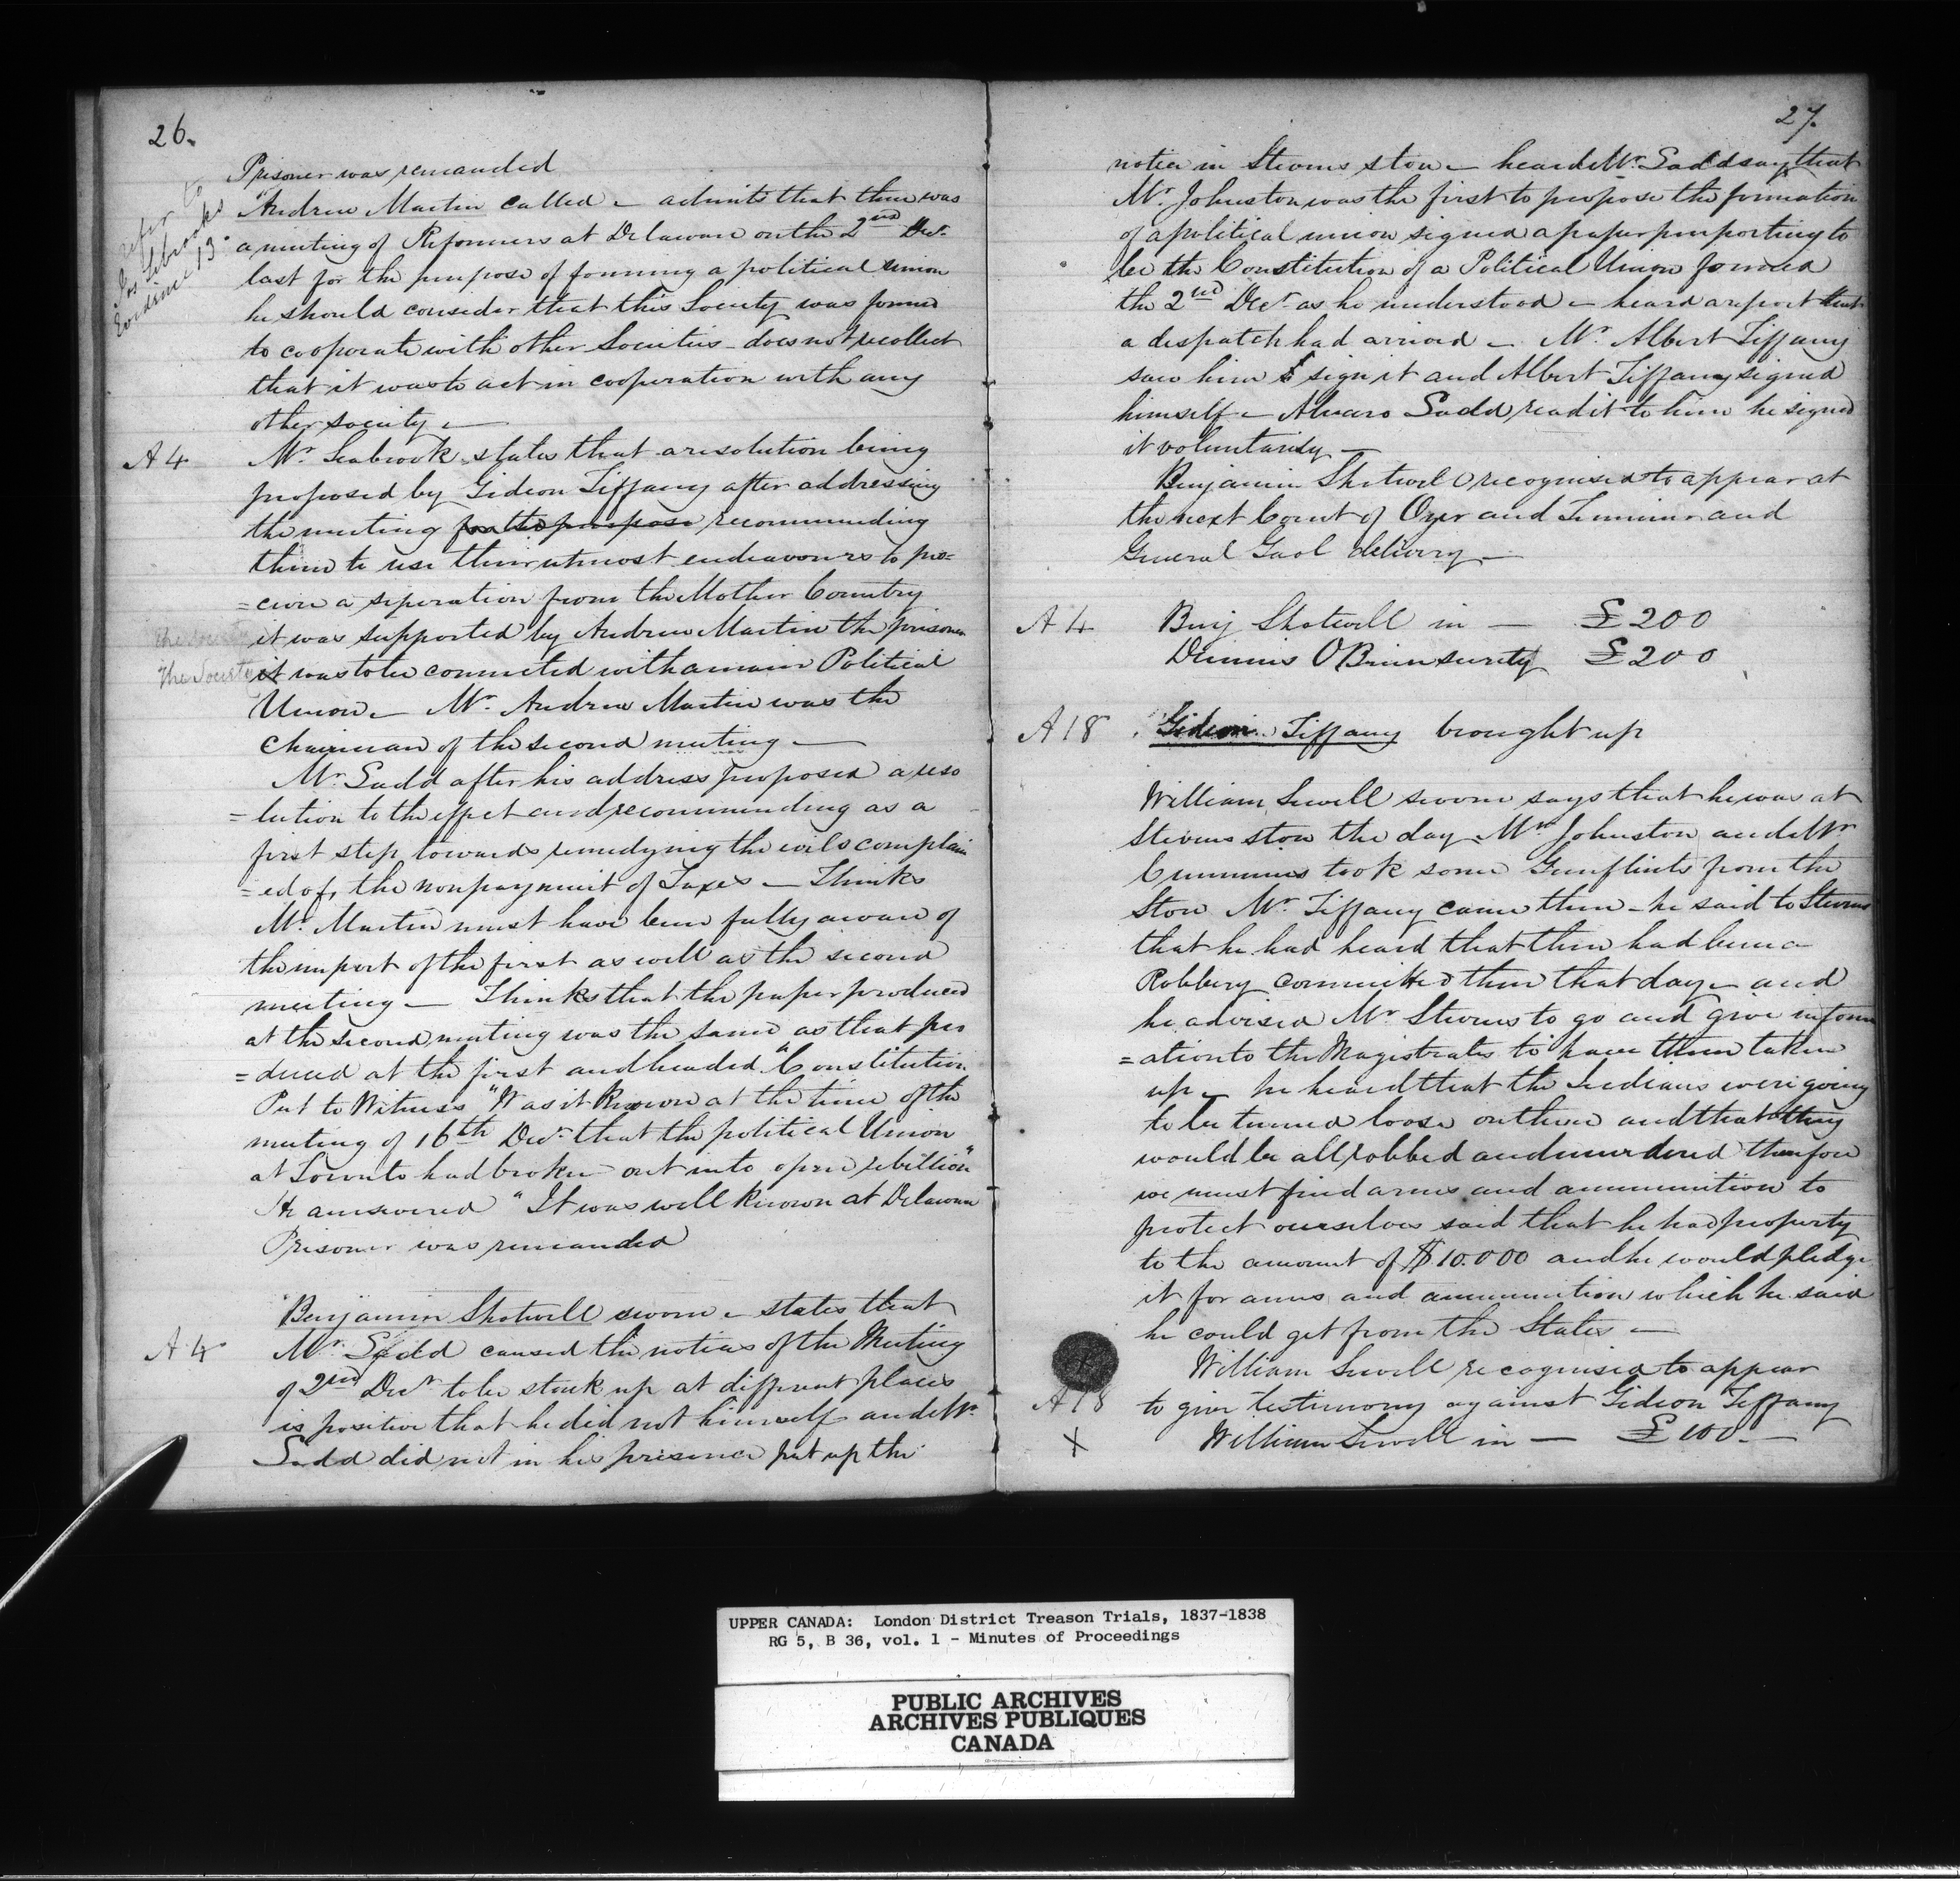 26.
refer to
Jos Sebrooks
Evidence 13
Prisoner was remanded
Andrew Martin called – admits that there was
a meeting of Reformers at Delaware on the 2nd Decr
last for the purpose of forming a political Union
he should consider that this Society was formed
to cooperate with other Societies – does not recollect
that it was to act in cooperation with any
other society –
A 4 Mr. Seabrook states that a resolution being
proposed by Gideon Tiffany after addressing
the meeting for the purpose recommending
them to use their utmost endeavours to pro=
=cure a seperation from the Mother Country
it was supported by Andrew Martin the prisoner
The Society it was to be connected with a main Political
Union – Mr. Andrew Martin was the
Chairman of the second meeting –
Mr. Ladd after his address proposed a reso
=lution to the effect and recommending as a
first step towards remedying the evils complain
=ed of, the nonpayment of Taxes – Thinks
Mr. Martin must have been fully aware of
the import of the first as well as the second
meeting – Thinks that the paper produced
at the second meeting was the same as that pro
=duced at the first and headed "Constitution
Put to Witness "Was it known at the time of the
meeting of 16th Decr. that the political Union
at Toronto had broken out into open rebellion"
He answered "It was well known at Delaware
Prisoner was remanded
Benjamin Shotwell sworn – states that
A 4 Mr. Ladd caused the notices of the Meeting
of 2nd Decr to be stuck up at different places
is positive that he did not himself and Mr.
Ladd did not in his presence put up the
27.
notice in Stevens store – heard Mr. Ladd say that
Mr. Johnston was the first to propose the formation
of a political union signed a paper purporting to
be the Constitution of a Political Union formed
the 2nd Decr as he understood – heard a report that
a despatch had arrived – Mr. Albert Tiffany
saw him sign it and Albert Tiffany signed
himself – Alvaro Ladd read it to him he signed
it voluntarily –
Benjamin Shotwell recognised to appear at
the next Court of Oyer and Terminer and
General Gaol delivery –
A 4 Benj Shotwell in — £200
Dennis O Brien surety £200
A 18 Gideon Tiffany brought up
William Sewell sworn says that he was at
Stevens store the day Mr Johnston and Mr
Cummins took some Gunflints from the
Store Mr. Tiffany came there – he said to Stevens
that he had heard that there had been a
Robbery committed there that day – and
he advised Mr. Stevens to go and give inform
=ation to the Magistrates to have them taken
up – he heard that the Indians were going
to be turned loose on them and that they
would be all robbed and murdered therefore
we must find arms and ammunition to
protect ourselves said that he had property
to the amount of $10.000 and he would pledge
it for arms and ammunition which he said
he could get from the States –
William Sewell recognised to appear
A 18 to give testimony against Gideon Tiffany
X William Sewell in — £100 –
UPPER CANADA: London District Treason Trials, 1837-1838
RG 5, B 36, vol. 1 - Minutes of Proceedings
PUBLIC ARCHIVES
ARCHIVES PUBLIQUES
CANADA